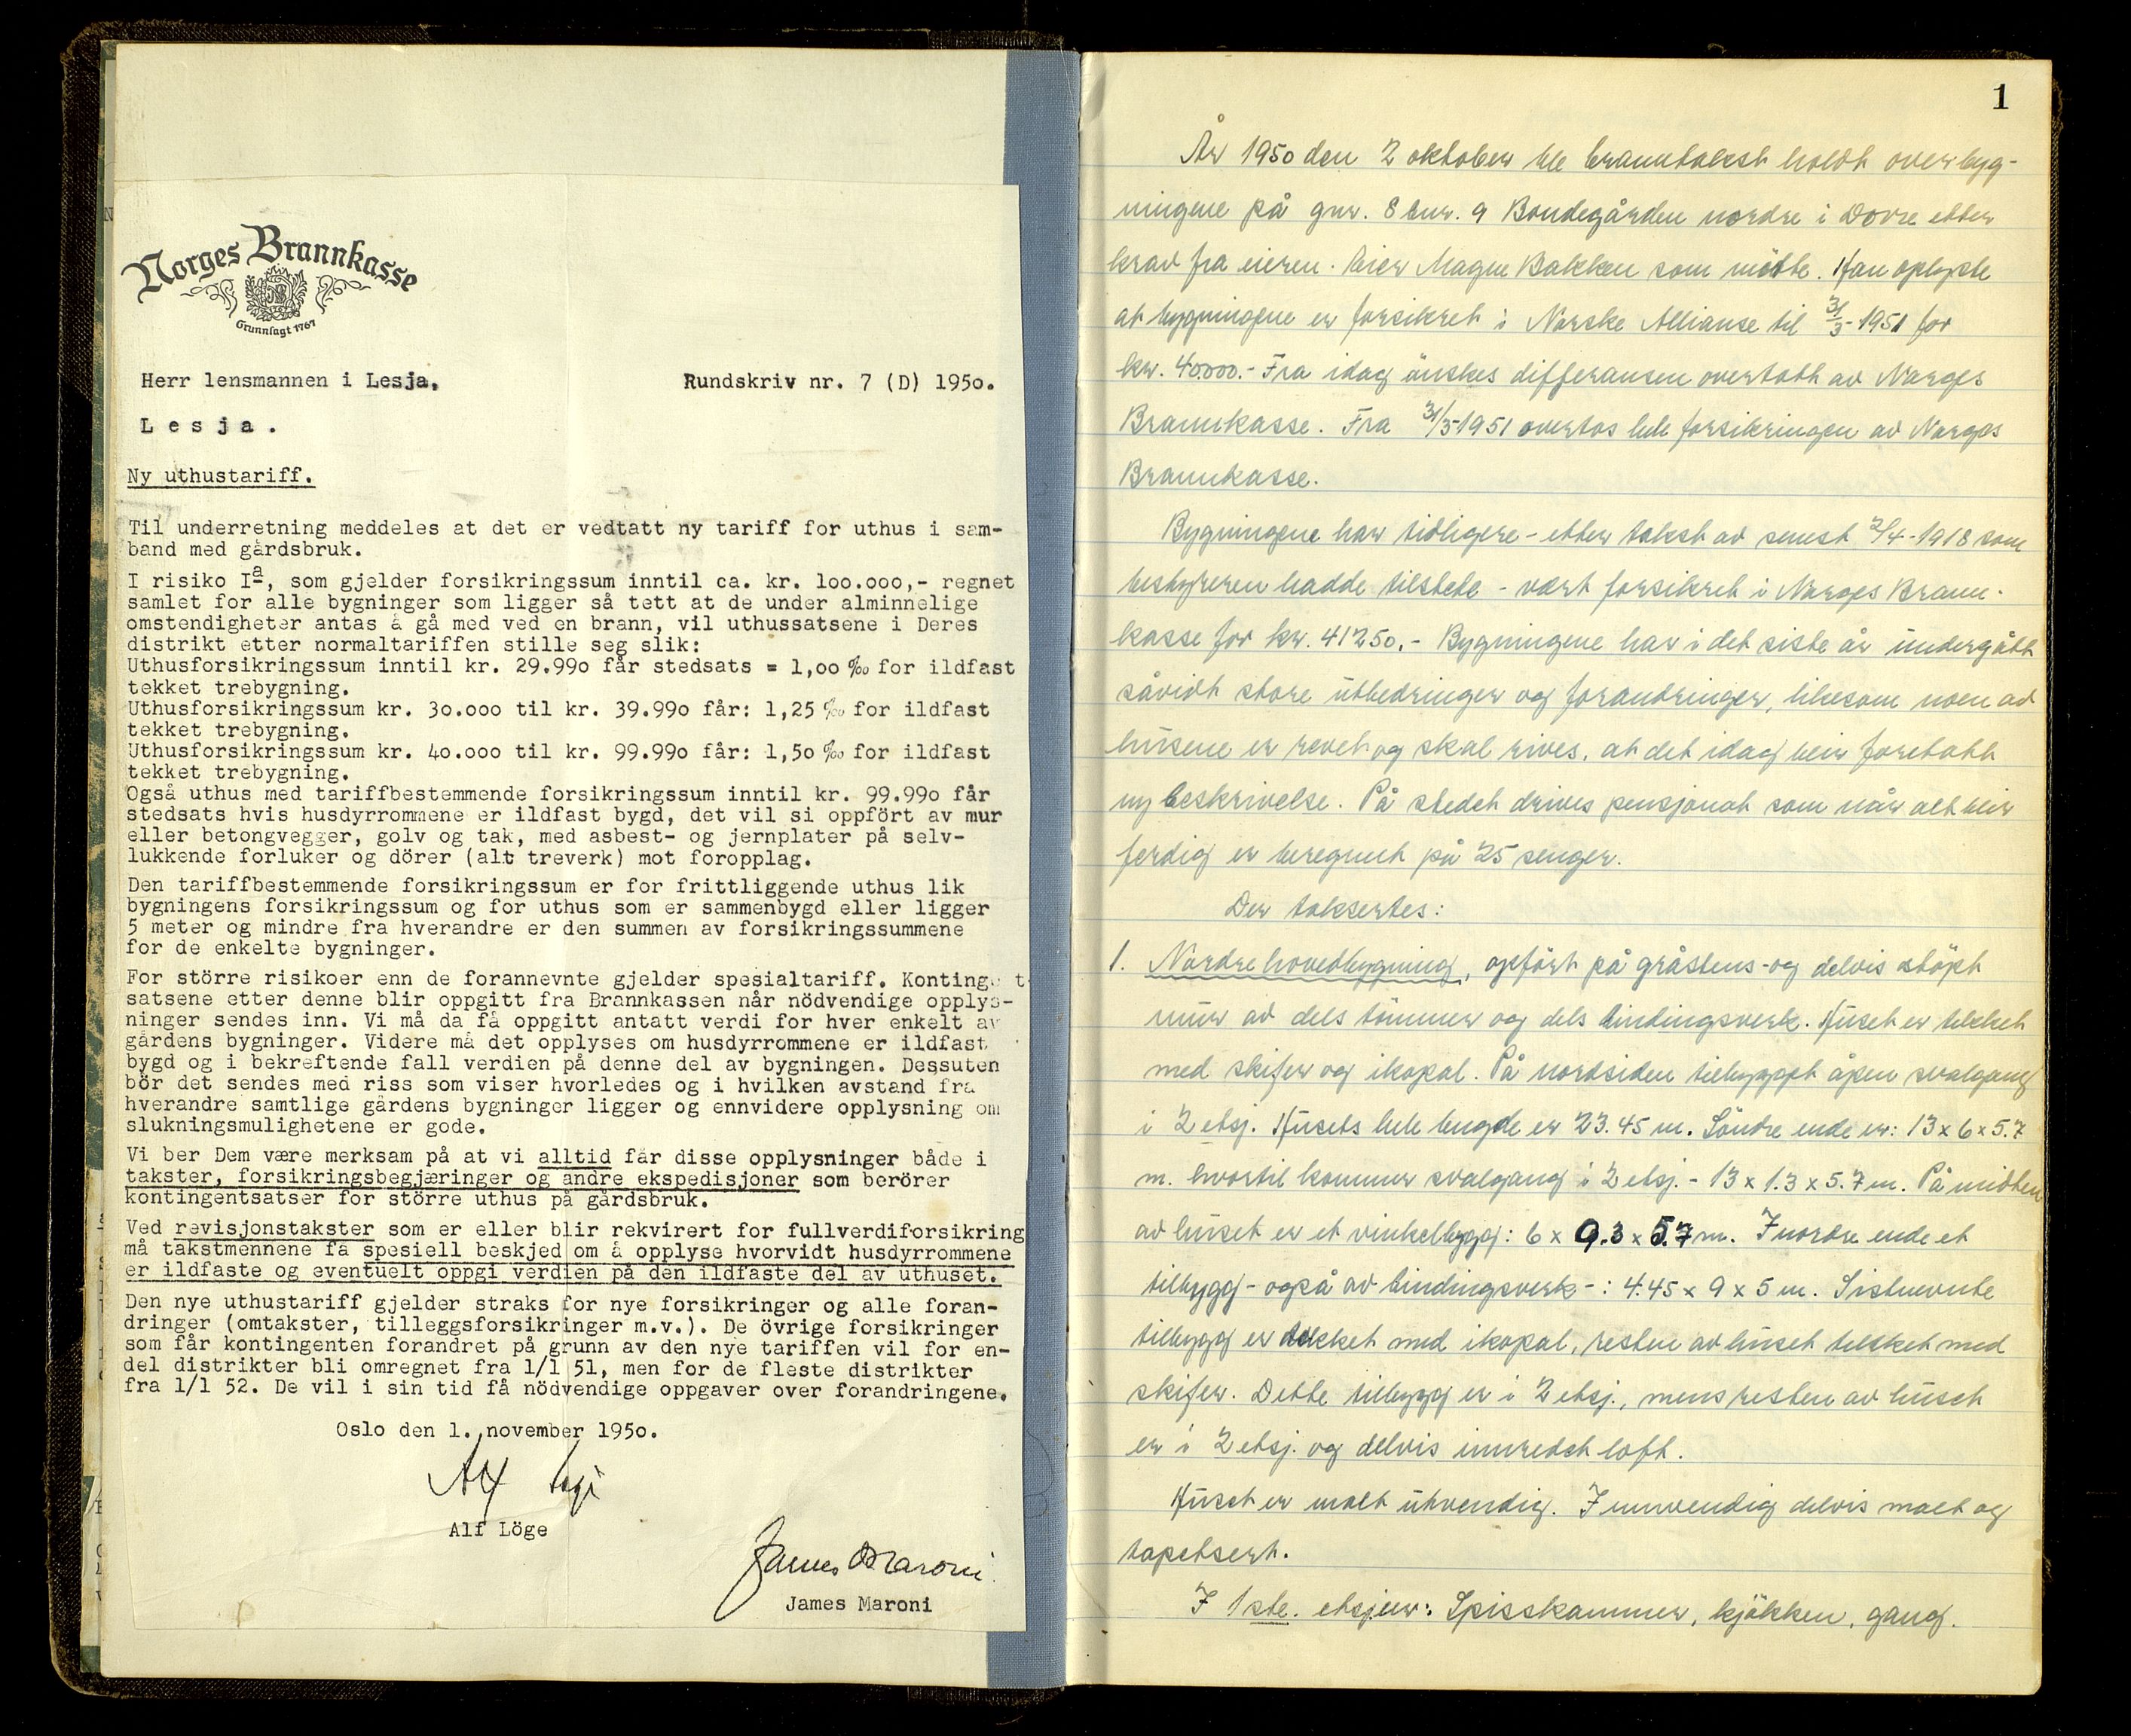 Norges Brannkasse
Grunnlagt 1767
Herr lensmannen i Lesja.
Rundskriv nr. 7 (D) 1950.
Lesja.
Ny uthustariff.
Til underretning meddeles at det er vedtatt ny tariff for uthus i sam-
band med gårdsbruk.
I risiko Ia, som gjelder forsikringssum inntil ca. kr. 100.000,- regnet
samlet for alle bygninger som ligger så tett at de under alminnelige
omstendigheter antas å gå med ved en brann, vil uthussatsene i Deres
distrikt etter normaltariffen stille seg slik:
Uthusforsikringssum inntil kr. 29.990 får stedsats = 1,00 ‰ for ildfast
tekket trebygning.
Uthusforsikringssum kr. 30.000 til kr. 39.990 får: 1,25 ‰ for ildfast
tekket trebygning.
Uthusforsikringssum kr. 40.000 til kr. 99.990 får: 1,50 ‰ for ildfast
tekket trebygning.
Også uthus med tariffbestemmende forsikringssum inntil kr. 99.990 får
stedsats hvis husdyrrommene er ildfast bygd, det vil si oppfört av mur
eller betongvegger, golv og tak, med asbest- og jernplater på selv-
lukkende forluker og dörer (alt treverk) mot foropplag.
Den tariffbestemmende forsikringssum er for frittliggende uthus lik
bygningens forsikringssum og for uthus som er sammenbygd eller ligger
5 meter og mindre fra hverandre er den summen av forsikringssummene
for de enkelte bygninger.
For större risikoer enn de forannevnte gjelder spesialtariff. Konting t-
satsene etter denne blir oppgitt fra Brannkassen når nödvendige opplys-
ninger sendes inn. Vi må da få oppgitt antatt verdi for hver enkelt av
gårdens bygninger. Videre må det opplyses om husdyrrommene er ildfast
bygd og i bekreftende fall verdien på denne del av bygningen. Dessuten
bör det sendes med riss som viser hvorledes og i hvilken avstand fra
hverandre samtlige gårdens bygninger ligger og ennvidere opplysning om
slukningsmulighetene er gode.
Vi ber Dem være merksam på at vi alltid får disse opplysninger både i
takster, forsikringsbegjæringer og andre ekspedisjoner som berörer
kontingentsatser for större uthus på gårdsbruk.
Ved revisjonstakster som er eller blir rekvirert for fullverdiforsikring
må takstmennene få spesiell beskjed om å opplyse hvorvidt husdyrrommene
er ildfaste og eventuelt oppgi verdien på den ildfaste del av uthuset.
Den nye uthustariff gjelder straks for nye forsikringer og alle foran-
dringer (omtakster, tilleggsforsikringer m.v.). De övrige forsikringer
som får kontingenten forandret på grunn av den nye tariffen vil for en-
del distrikter bli omregnet fra 1/1 51, men for de fleste distrikter
fra 1/1 52. De vil i sin tid få nödvendige oppgaver over forandringene.
Oslo den 1. november 1950.
Alf Löge
Alf Löge
James Maroni
James Maroni
1
År 1950 den 2 oktober ble branntakst holdt over byg-
ningene på gnr. 8 bnr. 9 Bondegården nordre i Dovre etter
krav fra eieren. Eier Magne Bakken som mötte. Han oplyste
at bygningene er forsikret i Norske Allianse til 31/3-1951 for
kr. 40.000.- Fra idag önskes differansen overtatt av Norges
Brannkasse. Fra 31/3-1951 overtas hele forsikringen av Norges
Brannkasse.
Bygningene har tidligere - etter takst av senest 2/4-1918 som
bestyreren hadde tilstede - vært forsikret i Norges Brann-
kasse for kr. 41250.- Bygningene har i det siste år undergått
såvidt store utbedringer og forandringer, likesom noen av
husene er revet og skal rives, at det idag blir foretatt
ny beskrivelse. På stedet drives pensjonat som når alt blir
ferdig er beregnet på 25 senger.
Der taksertes:
1. Nordre hovedbygning, opfört på gråstens- og delvis stöpt
mur av dels tömmer og dels bindingsverk. Huset er tekket
med skifer og ikopal. På nordsiden tilbyggt åpen svalgang
i 2 etsj. Husets hele lengde er 23.45 m. Söndre ende er: 13 x 6 x 5.7
m. hvortil kommer svalgang i 2 etsj. - 13 x 1.3 x 5.7 m. På midten
av huset er et vinkelbygg: 6 x 9.3 x 5.7 m. I nordre ende et
tilbygg - også av bindingsverk - : 4.45 x 9 x 5 m. Sistnevnte
tilbygg er tekket med ikopal, resten av huset tekket med
skifer. Dette tilbygg er i 2 etsj., mens resten av huset
er i 2 etsj. og delvis innredet loft.
Huset er malt utvendig. Innvendig delvis malt og
tapetsert.
I 1ste. etsjer: Spisskammer, kjökken, gang.